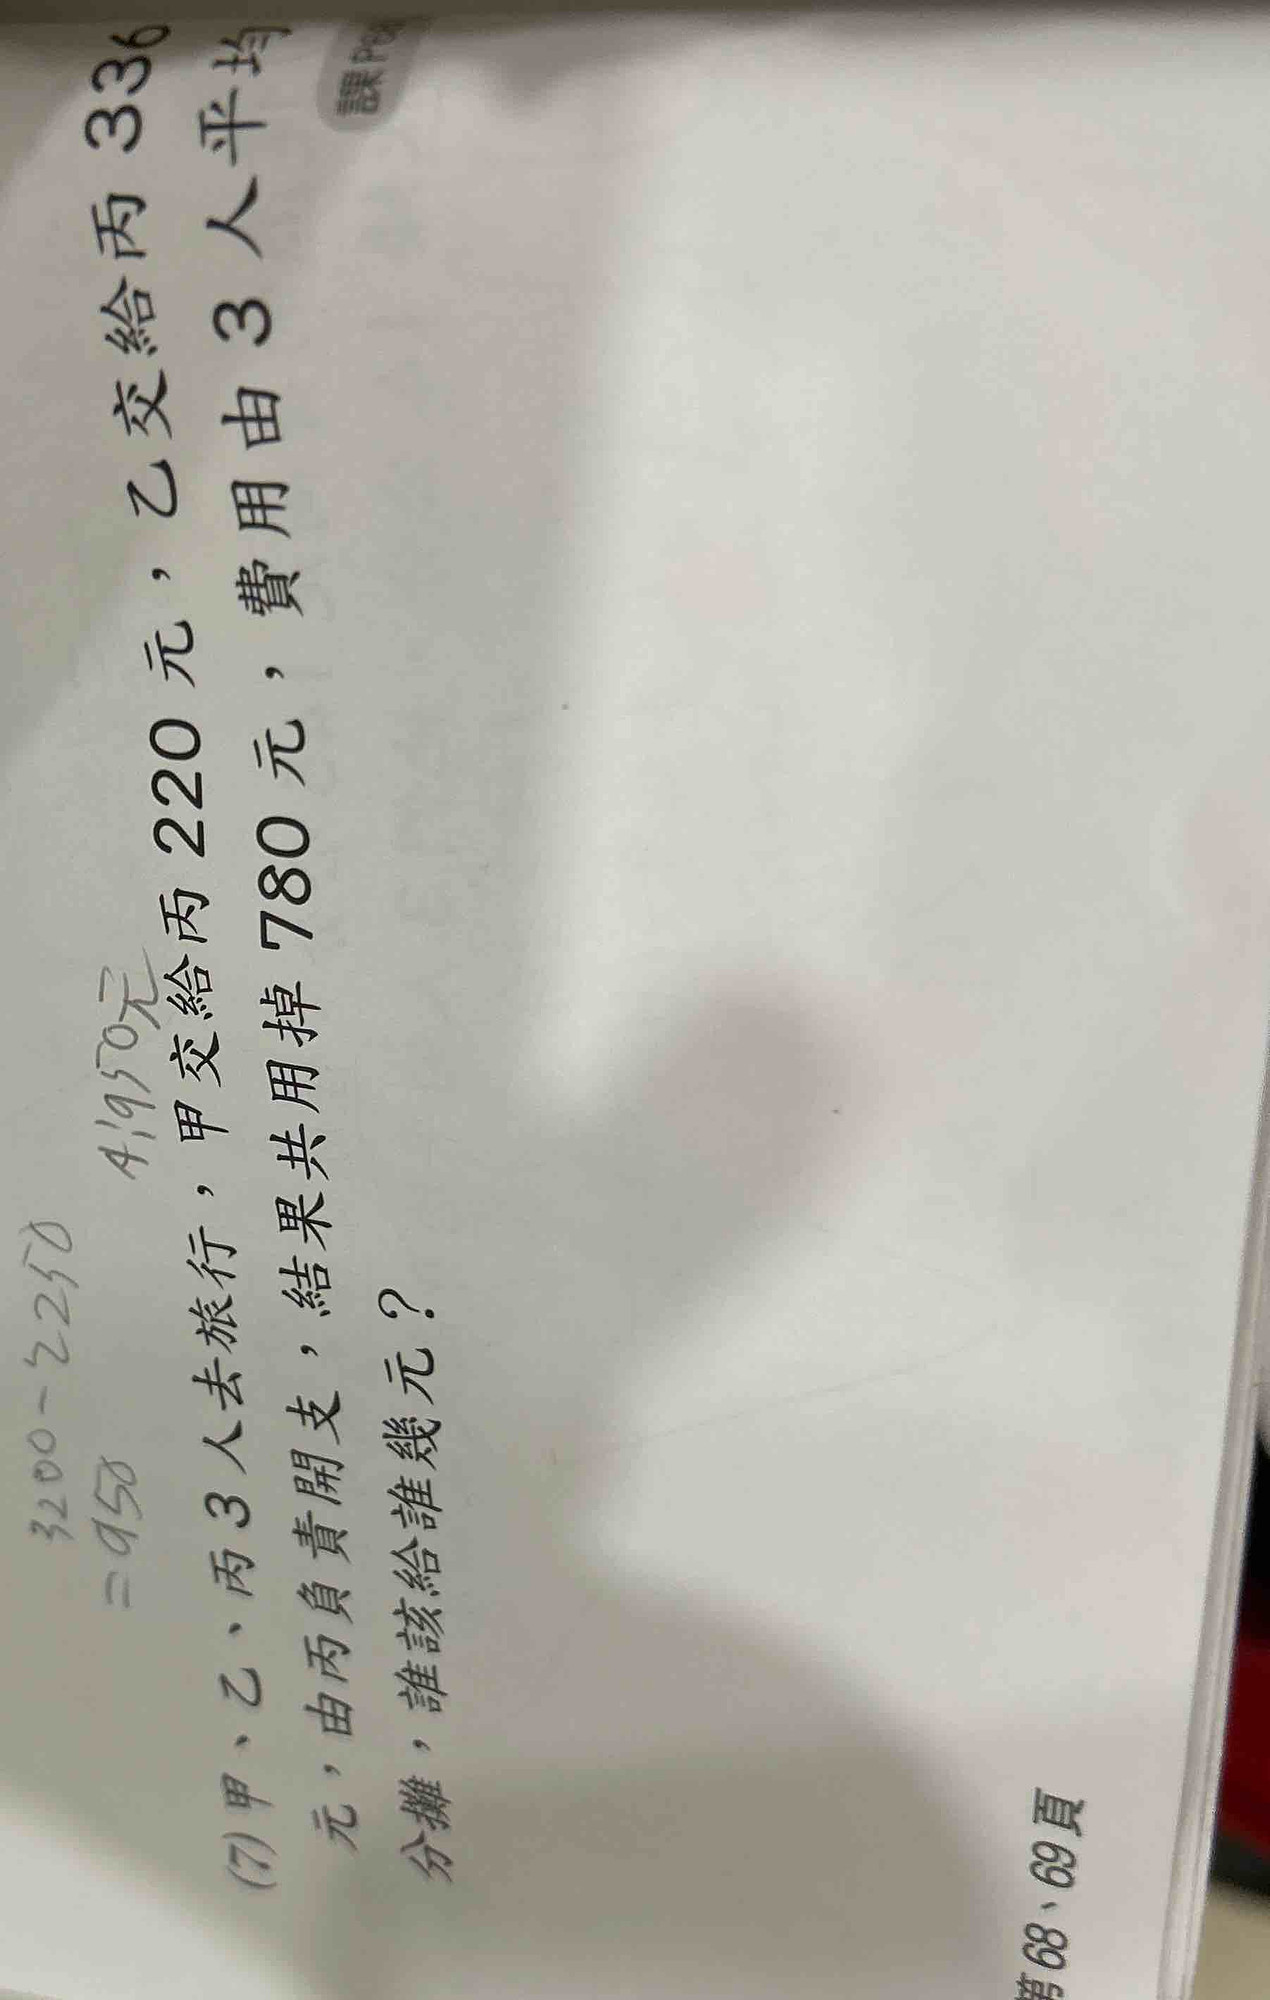 3200-2250
=950
A:950元
(7)甲、乙、丙3人去旅行，甲交給丙220元，乙交給丙336
元，由丙負責開支，結果共用掉780元，費用由3人平均
分攤，誰該給誰幾元？
課P68
第68、69頁